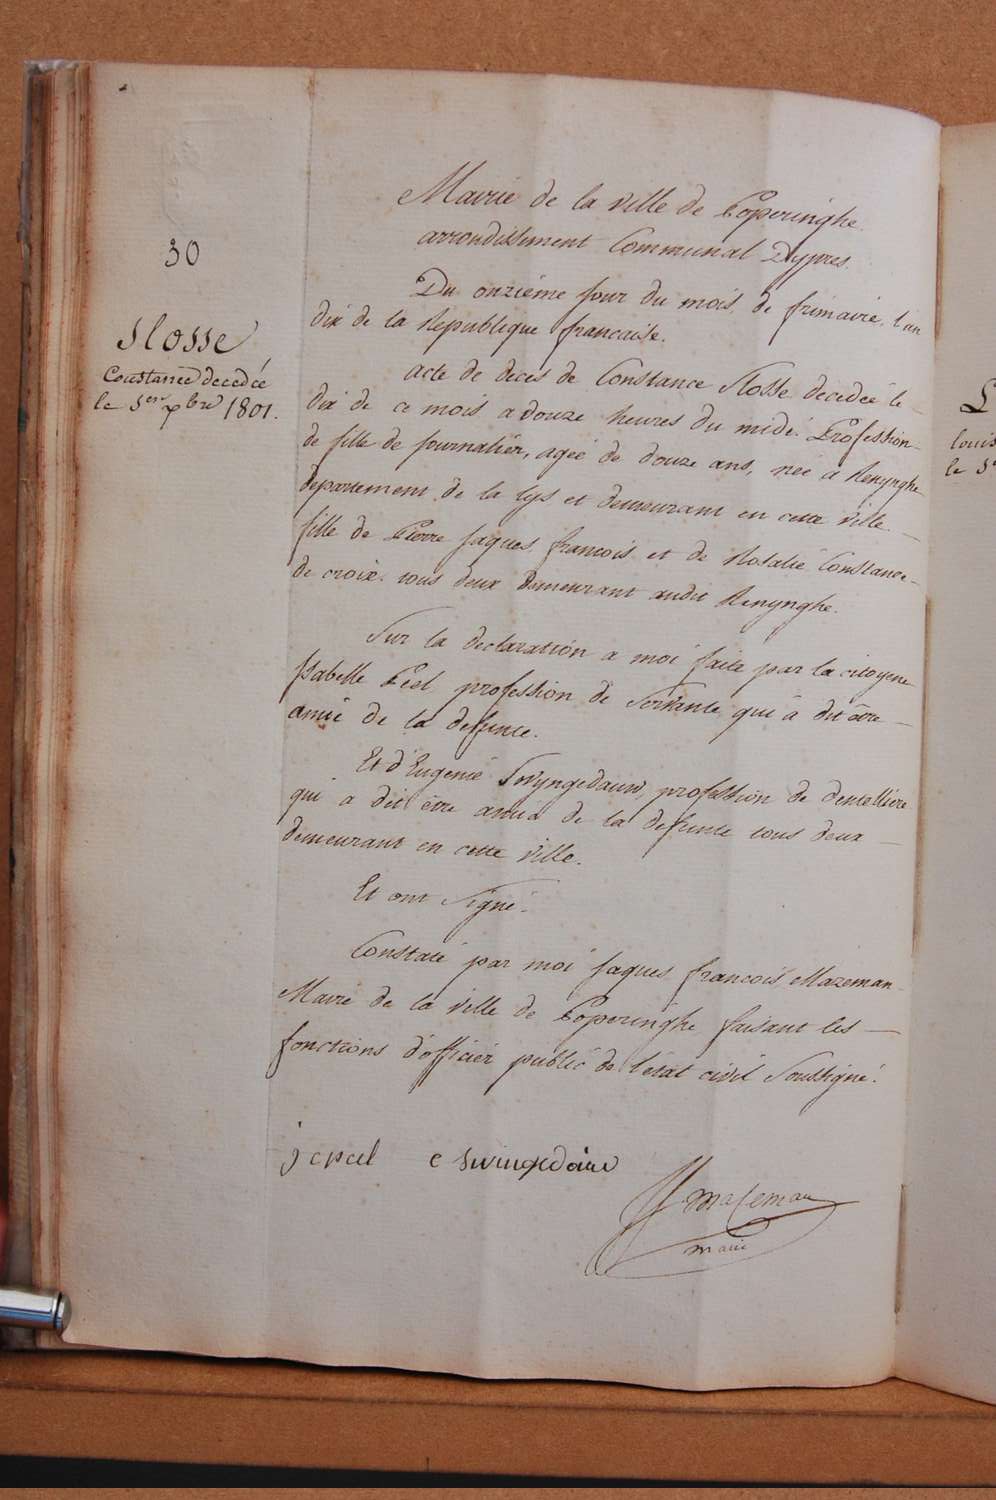 30
Slosse
Constance decedée
le 1er xbre 1801.
Mairie de la ville de Poperinghe.
arrondissement Communal Dypres.
Du onzième jour du mois de frimaire, l'an
dix de la Republique francaise.
acte de deces de Constance Slosse decedée le
dix de ce mois a douze heures du midi. Profession
de fille de journalier, agée de douze ans, née à Renynghe
departement de la Lys et demeurant en cette ville.
fille de Pierre jaques francois et de Rosalie Constance
de croix. tous deux demeurant audit Renynghe.
Sur la declaration a moi faite par la citoyene
Isabelle Peel profession de Servante qui à dit être
amie de la defunte.
Et d'Eugenie Swyngedauw, profession de dentellière
qui a dit être amie de la defunte tous deux
demeurant en cette ville.
Et ont signé.
Constaté par moi jaques francois Mazeman
Maire de la ville de Poperinghe faisant les
fonctions d'officier public de l'état civil Soussigné.
e swingedauw
Mazeman
maire
louis
le